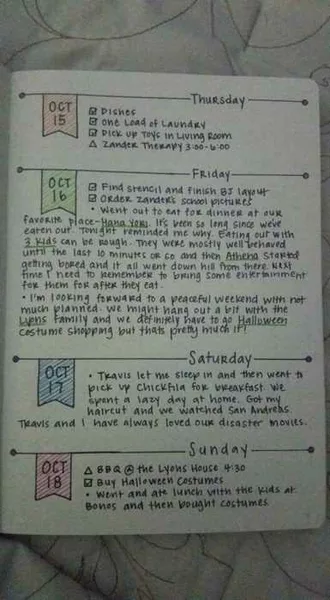 Thursday
OCT
15
☑ Dishes
☑ One Load of Laundry
☑ Pick up Toys in Living Room
△ Zander Therapy 3:00-6:00
Friday
OCT
16
☑ Find stencil and finish BJ layout
☑ Order Zander's school pictures
• Went out to eat for dinner at our
favorite place-Hana Yori. It's been so long since we've
eaten out. Tonight reminded me why. Eating out with
3 kids can be rough. They were mostly well behaved
until the last 10 minutes or so and then Athena started
getting bored and it all went down hill from there. Next
time I need to remember to bring some entertainment
for them for after they eat.
• I'm looking forward to a peaceful weekend with not
much planned. We might hang out a bit with the
Lyons Family and we definitely have to go Halloween
costume shopping but thats pretty much it!
Saturday
OCT
17
• Travis let me sleep in and then went to
pick up Chickfila for breakfast. We
spent a lazy day at home. Got my
haircut and we watched San Andreas.
Travis and I have always loved our disaster movies.
Sunday
OCT
18
△ BBQ @ the Lyons House 4:30
☑ Buy Halloween Costumes
• Went and ate lunch with the kids at
Bones and then bought costumes